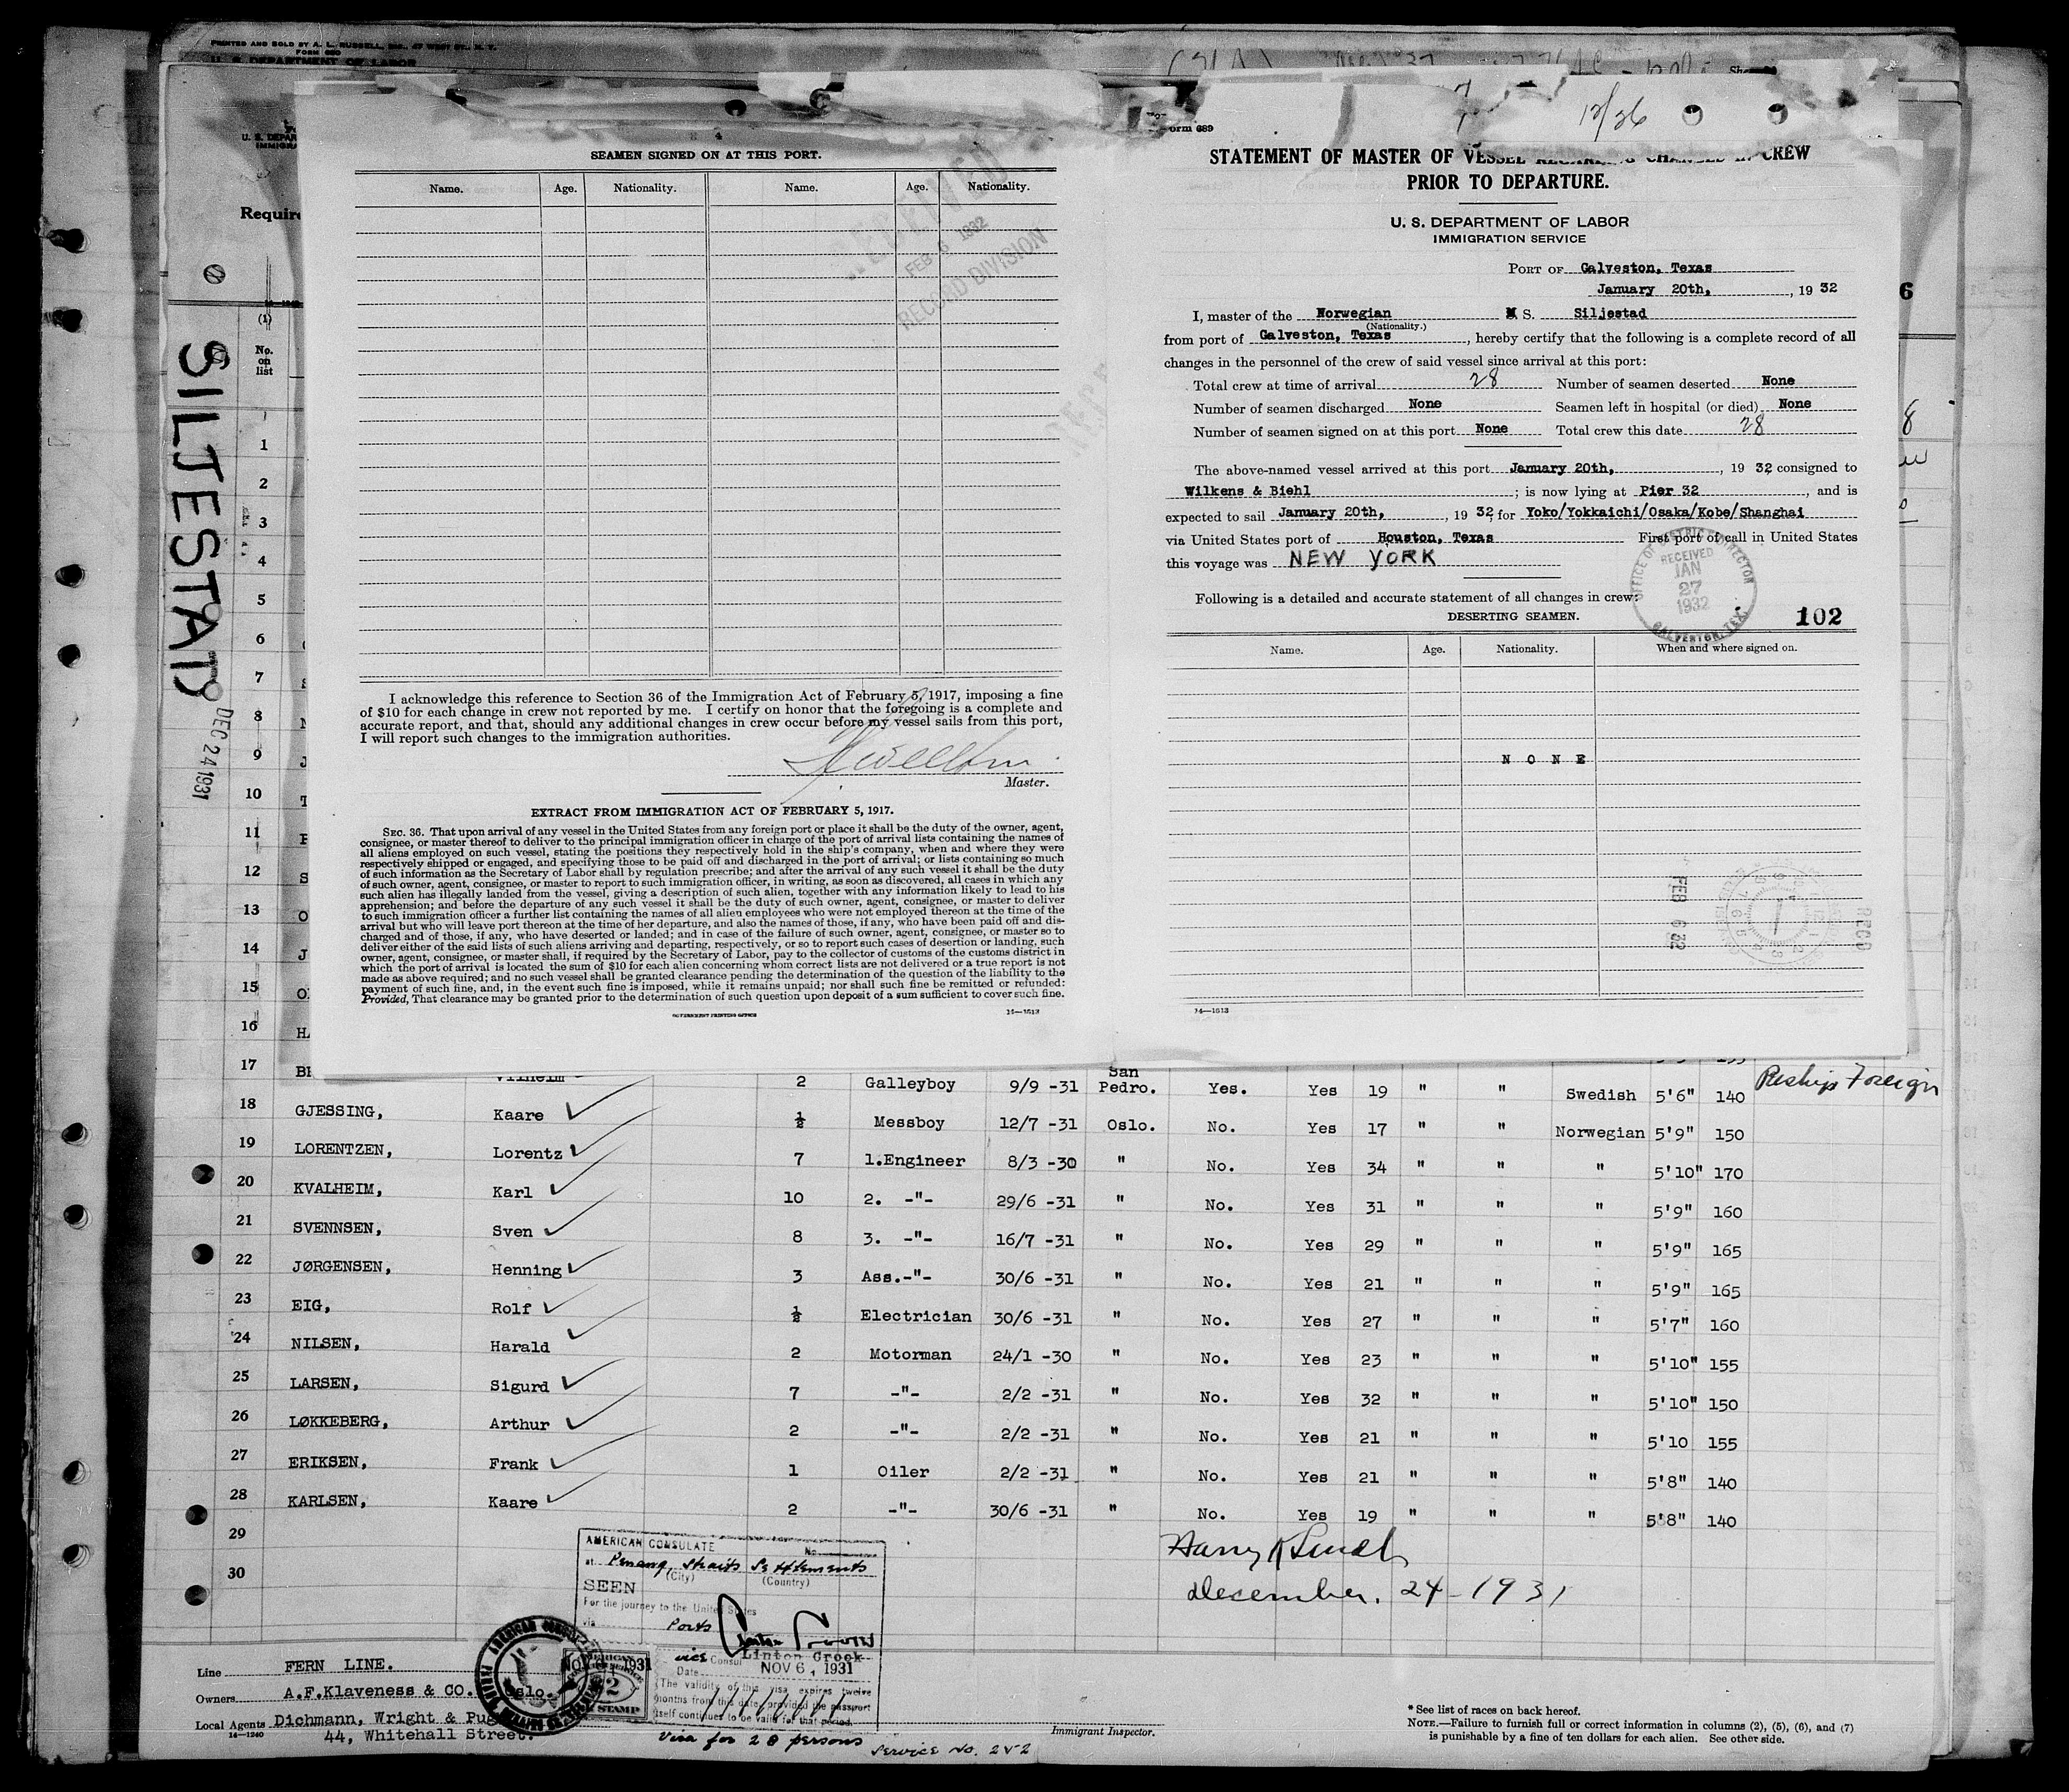 PRINTED AND SOLD BY A. L. RUSSELL, INC., 47 WEST ST., N. Y.
FORM 680
U. S. DEPARTMENT OF LABOR
U. S. DEPAR
IMMIGRA
Require
(1)
No.
on
list
SILJESTAD
DEC 24 1931
4
SEAMEN SIGNED ON AT THIS PORT.
Name. Age. Nationality. Name. Age. Nationality.
RECEIVED
FEB 6 1932
RECORD DIVISION
I acknowledge this reference to Section 36 of the Immigration Act of February 5, 1917, imposing a fine
of $10 for each change in crew not reported by me. I certify on honor that the foregoing is a complete and
accurate report, and that, should any additional changes in crew occur before my vessel sails from this port,
I will report such changes to the immigration authorities.
Master.
EXTRACT FROM IMMIGRATION ACT OF FEBRUARY 5, 1917.
SEC. 36. That upon arrival of any vessel in the United States from any foreign port or place it shall be the duty of the owner, agent,
consignee, or master thereof to deliver to the principal immigration officer in charge of the port of arrival lists containing the names of
all aliens employed on such vessel, stating the positions they respectively hold in the ship's company, when and where they were
respectively shipped or engaged, and specifying those to be paid off and discharged in the port of arrival; or lists containing so much
of such information as the Secretary of Labor shall by regulation prescribe; and after the arrival of any such vessel it shall be the duty
of such owner, agent, consignee, or master to report to such immigration officer, in writing, as soon as discovered, all cases in which any
such alien has illegally landed from the vessel, giving a description of such alien, together with any information likely to lead to his
apprehension; and before the departure of any such vessel it shall be the duty of such owner, agent, consignee, or master to deliver
to such immigration officer a further list containing the names of all alien employees who were not employed thereon at the time of the
arrival but who will leave port thereon at the time of her departure, and also the names of those, if any, who have been paid off and dis-
charged and of those, if any, who have deserted or landed; and in case of the failure of such owner, agent, consignee, or master so to
deliver either of the said lists of such aliens arriving and departing, respectively, or so to report such cases of desertion or landing, such
owner, agent, consignee, or master shall, if required by the Secretary of Labor, pay to the collector of customs of the customs district in
which the port of arrival is located the sum of $10 for each alien concerning whom correct lists are not delivered or a true report is not
made as above required; and no such vessel shall be granted clearance pending the determination of the question of the liability to the
payment of such fine, and, in the event such fine is imposed, while it remains unpaid; nor shall such fine be remitted or refunded:
Provided, That clearance may be granted prior to the determination of such question upon deposit of a sum sufficient to cover such fine.
GOVERNMENT PRINTING OFFICE 14—1613
Form 689
12/36
STATEMENT OF MASTER OF VESSEL REGARDING CHANGES IN CREW
PRIOR TO DEPARTURE.
U. S. DEPARTMENT OF LABOR
IMMIGRATION SERVICE
PORT OF Galveston, Texas
January 20th, , 19 32
I, master of the Norwegian M S. Siljestad
(Nationality.)
from port of Galveston, Texas , hereby certify that the following is a complete record of all
changes in the personnel of the crew of said vessel since arrival at this port:
Total crew at time of arrival 28 Number of seamen deserted None
Number of seamen discharged None Seamen left in hospital (or died) None
Number of seamen signed on at this port None Total crew this date 28
The above-named vessel arrived at this port January 20th, , 19 32 consigned to
Wilkens & Biehl ; is now lying at Pier 32 , and is
expected to sail January 20th, , 19 32, for Yoko/Yokkaichi/Osaka/Kobe/Shanghai
via United States port of Houston, Texas First port of call in United States
this voyage was NEW YORK
OFFICE OF DISTRICT DIRECTOR
RECEIVED
JAN
27
1932
GALVESTON, TEX.
Following is a detailed and accurate statement of all changes in crew:
DESERTING SEAMEN. 102
Name. Age. Nationality. When and where signed on.
N O N E
FEB 6 32
RECD
14—1613
1
2
3
4
5
6
7
8
9
10
11
12
13
14
15
16
17 Vilhelm 2 Galleyboy 9/9 -31 San Pedro. Yes. Yes 19 " " Swedish 5'6" 140 Reship Foreign
18 GJESSING, Kaare ½ Messboy 12/7 -31 Oslo. No. Yes 17 " " Norwegian 5'9" 150
19 LORENTZEN, Lorentz 7 1.Engineer 8/3 -30 " No. Yes 34 " " " 5'10" 170
20 KVALHEIM, Karl 10 2. -"- 29/6 -31 " No. Yes 31 " " " 5'9" 160
21 SVENNSEN, Sven 8 3. -"- 16/7 -31 " No. Yes 29 " " " 5'9" 165
22 JØRGENSEN, Henning 3 Ass.-"- 30/6 -31 " No. Yes 21 " " " 5'9" 165
23 EIG, Rolf ½ Electrician 30/6 -31 " No. Yes 27 " " " 5'7" 160
24 NILSEN, Harald 2 Motorman 24/1 -30 " No. Yes 23 " " " 5'10" 155
25 LARSEN, Sigurd 7 -"- 2/2 -31 " No. Yes 32 " " " 5'10" 150
26 LØKKEBERG, Arthur 2 -"- 2/2 -31 " No. Yes 21 " " " 5'10 155
27 ERIKSEN, Frank 1 Oiler 2/2 -31 " No. Yes 21 " " " 5'8" 140
28 KARLSEN, Kaare 2 -"- 30/6 -31 " No. Yes 19 " " " 5'8" 140
29
30
December. 24-1931
AMERICAN CONSULATE
No.
at Penang, Straits Settlements
(City) (Country)
SEEN
For the journey to the United States
via Ports
Linton Crook
vice Consul
Date NOV 6, 1931
The validity of this visa expires twelve
months from this date, provided the passport
itself continues to be valid for that period.
Visa for 28 persons
Service No. 252
Line FERN LINE.
Owners A.F.Klaveness & CO. Oslo.
Local Agents Dichmann, Wright & Pug
44, Whitehall Street.
14—1240
Immigrant Inspector.
* See list of races on back hereof.
NOTE.—Failure to furnish full or correct information in columns (2), (5), (6), and (7)
is punishable by a fine of ten dollars for each alien. See other side.